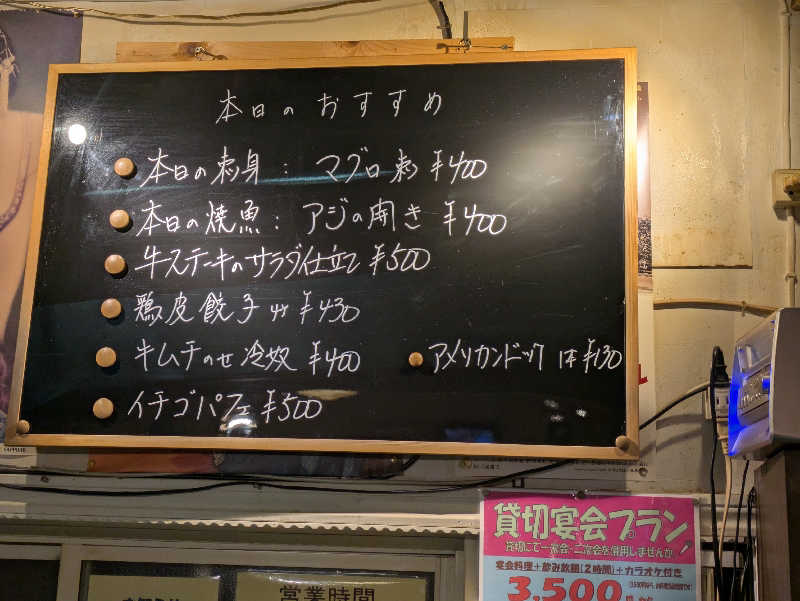 本日のおすすめ
本日の刺身：マグロ刺 ¥400
本日の焼魚：アジの開き ¥400
牛ステーキのサラダ仕立て ¥500
鶏皮餃子 4ヶ ¥430
キムチのせ冷奴 ¥400
アメリカンドック 1本 ¥130
イチゴパフェ ¥500
貸切宴会プラン
貸切にて一次会・二次会を併用しませんか
宴会料理+飲み放題(2時間)+カラオケ付き
3,500
営業時間